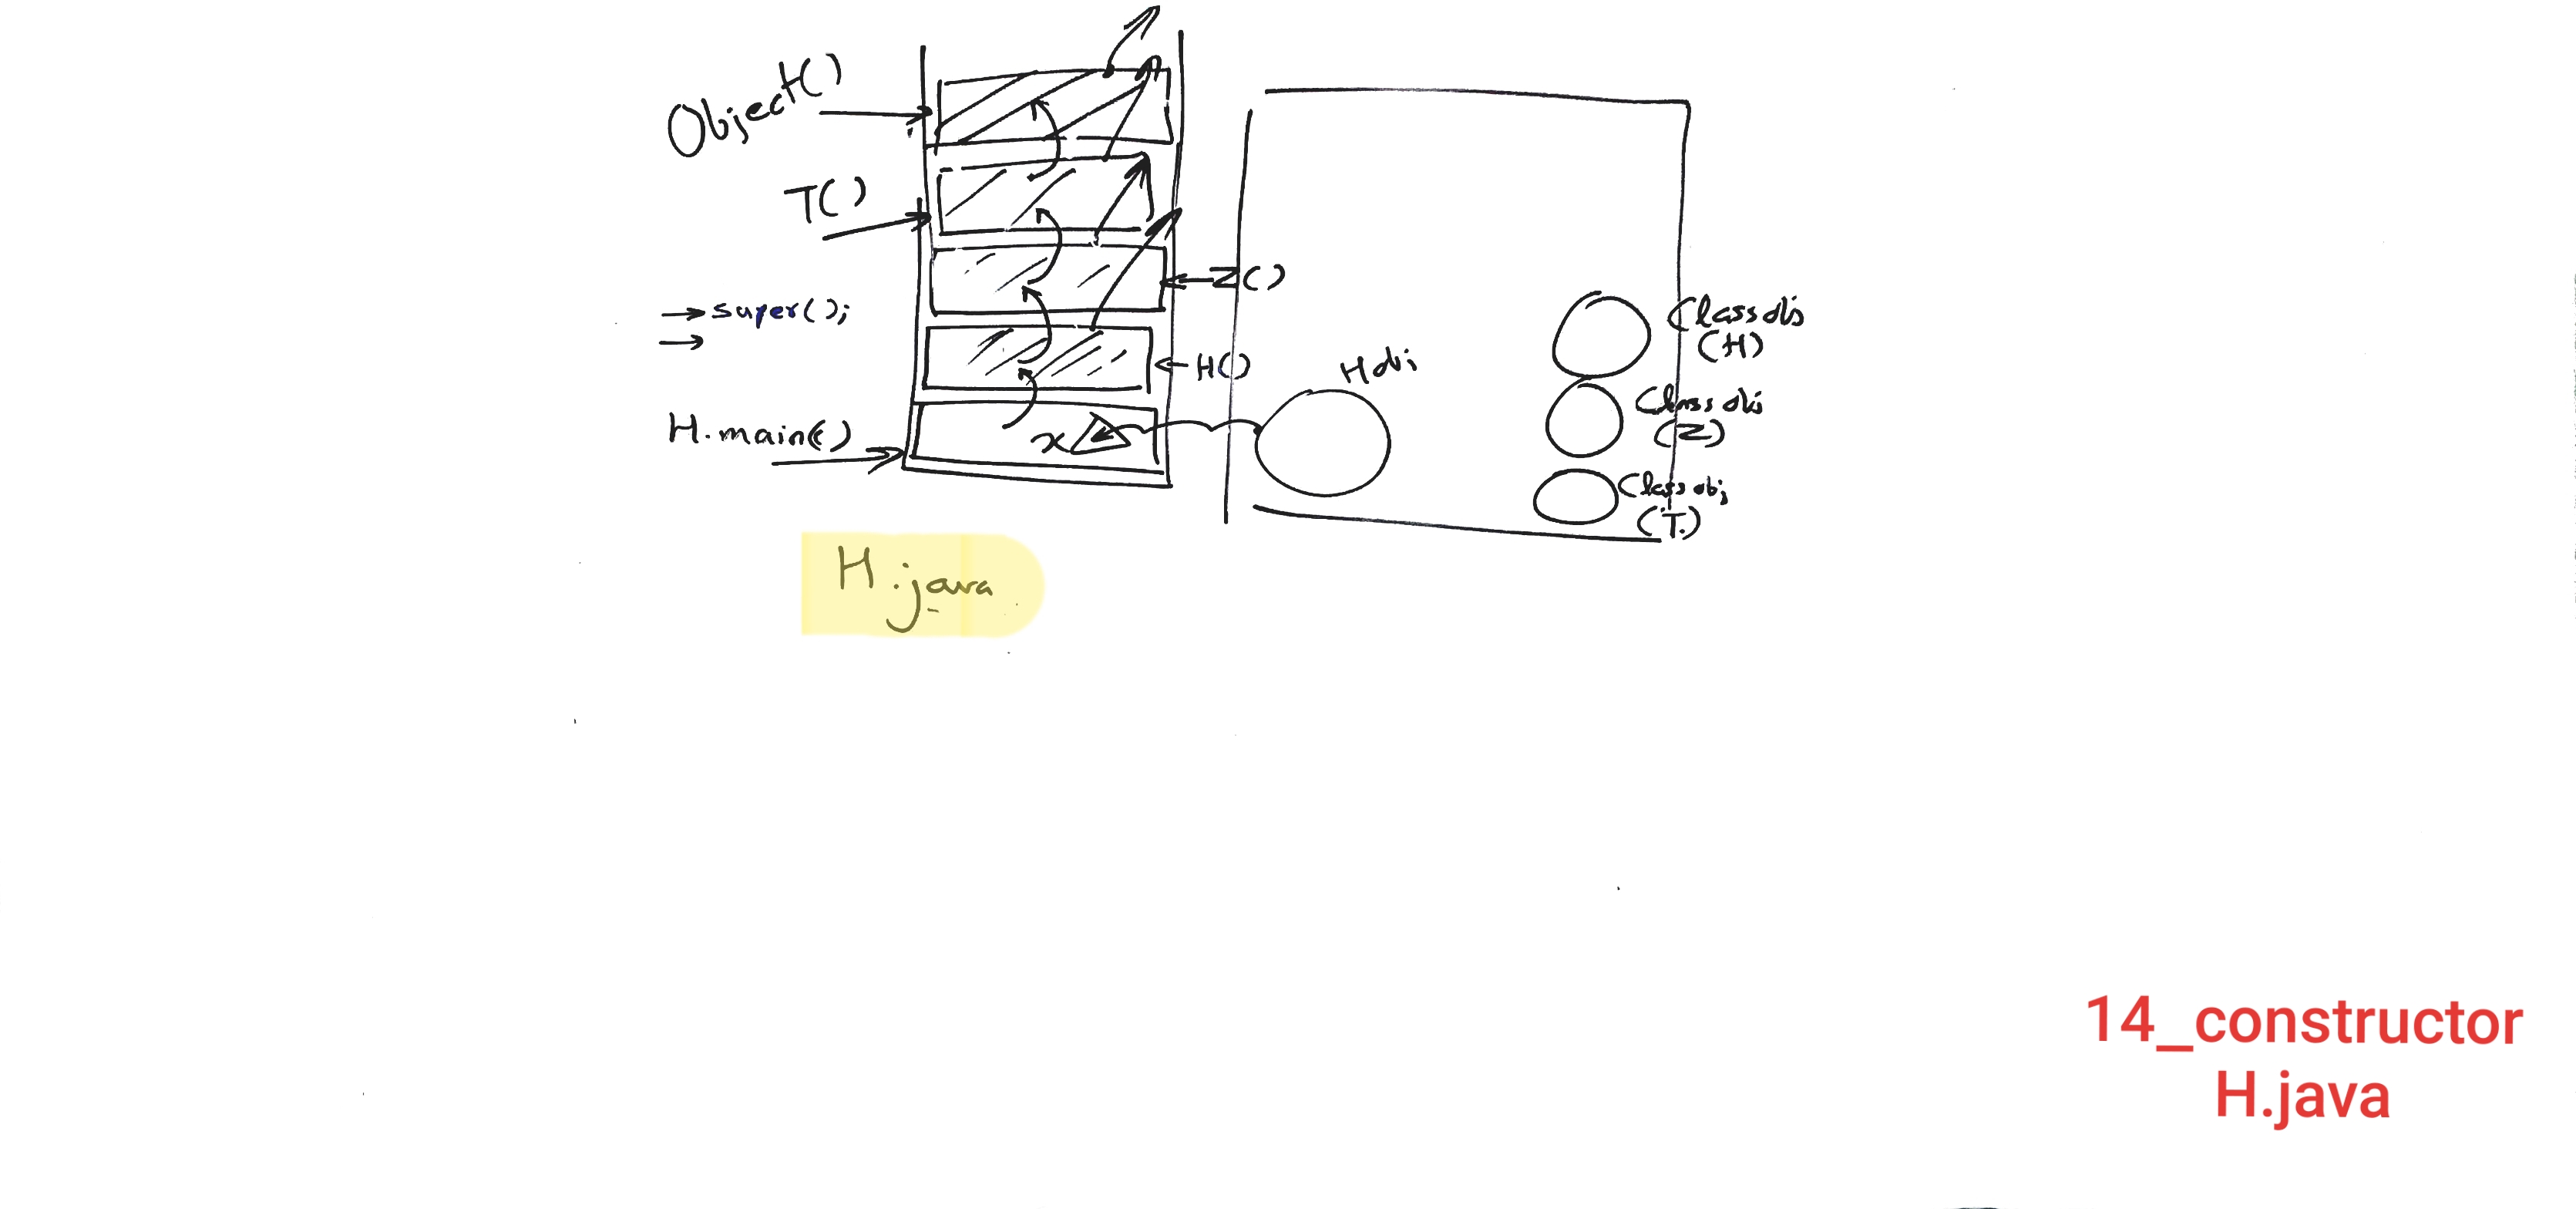 Object()
T()
Z()
→ super();
→
H()
H obj
Class obj
(H)
Class obj
(Z)
Class obj
(T.)
H.main()
x
H.java
14_constructor
H.java